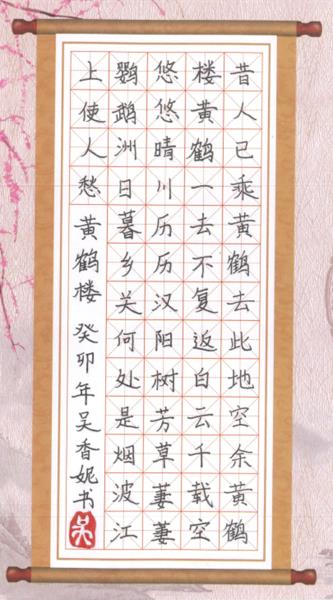 昔人已乘黄鹤去此地空余黄鹤
楼黄鹤一去不复返白云千载空
悠悠晴川历历汉阳树芳草萋萋
鹦鹉洲日暮乡关何处是烟波江
上使人愁 黄鹤楼 癸卯年吴香妮书
吴